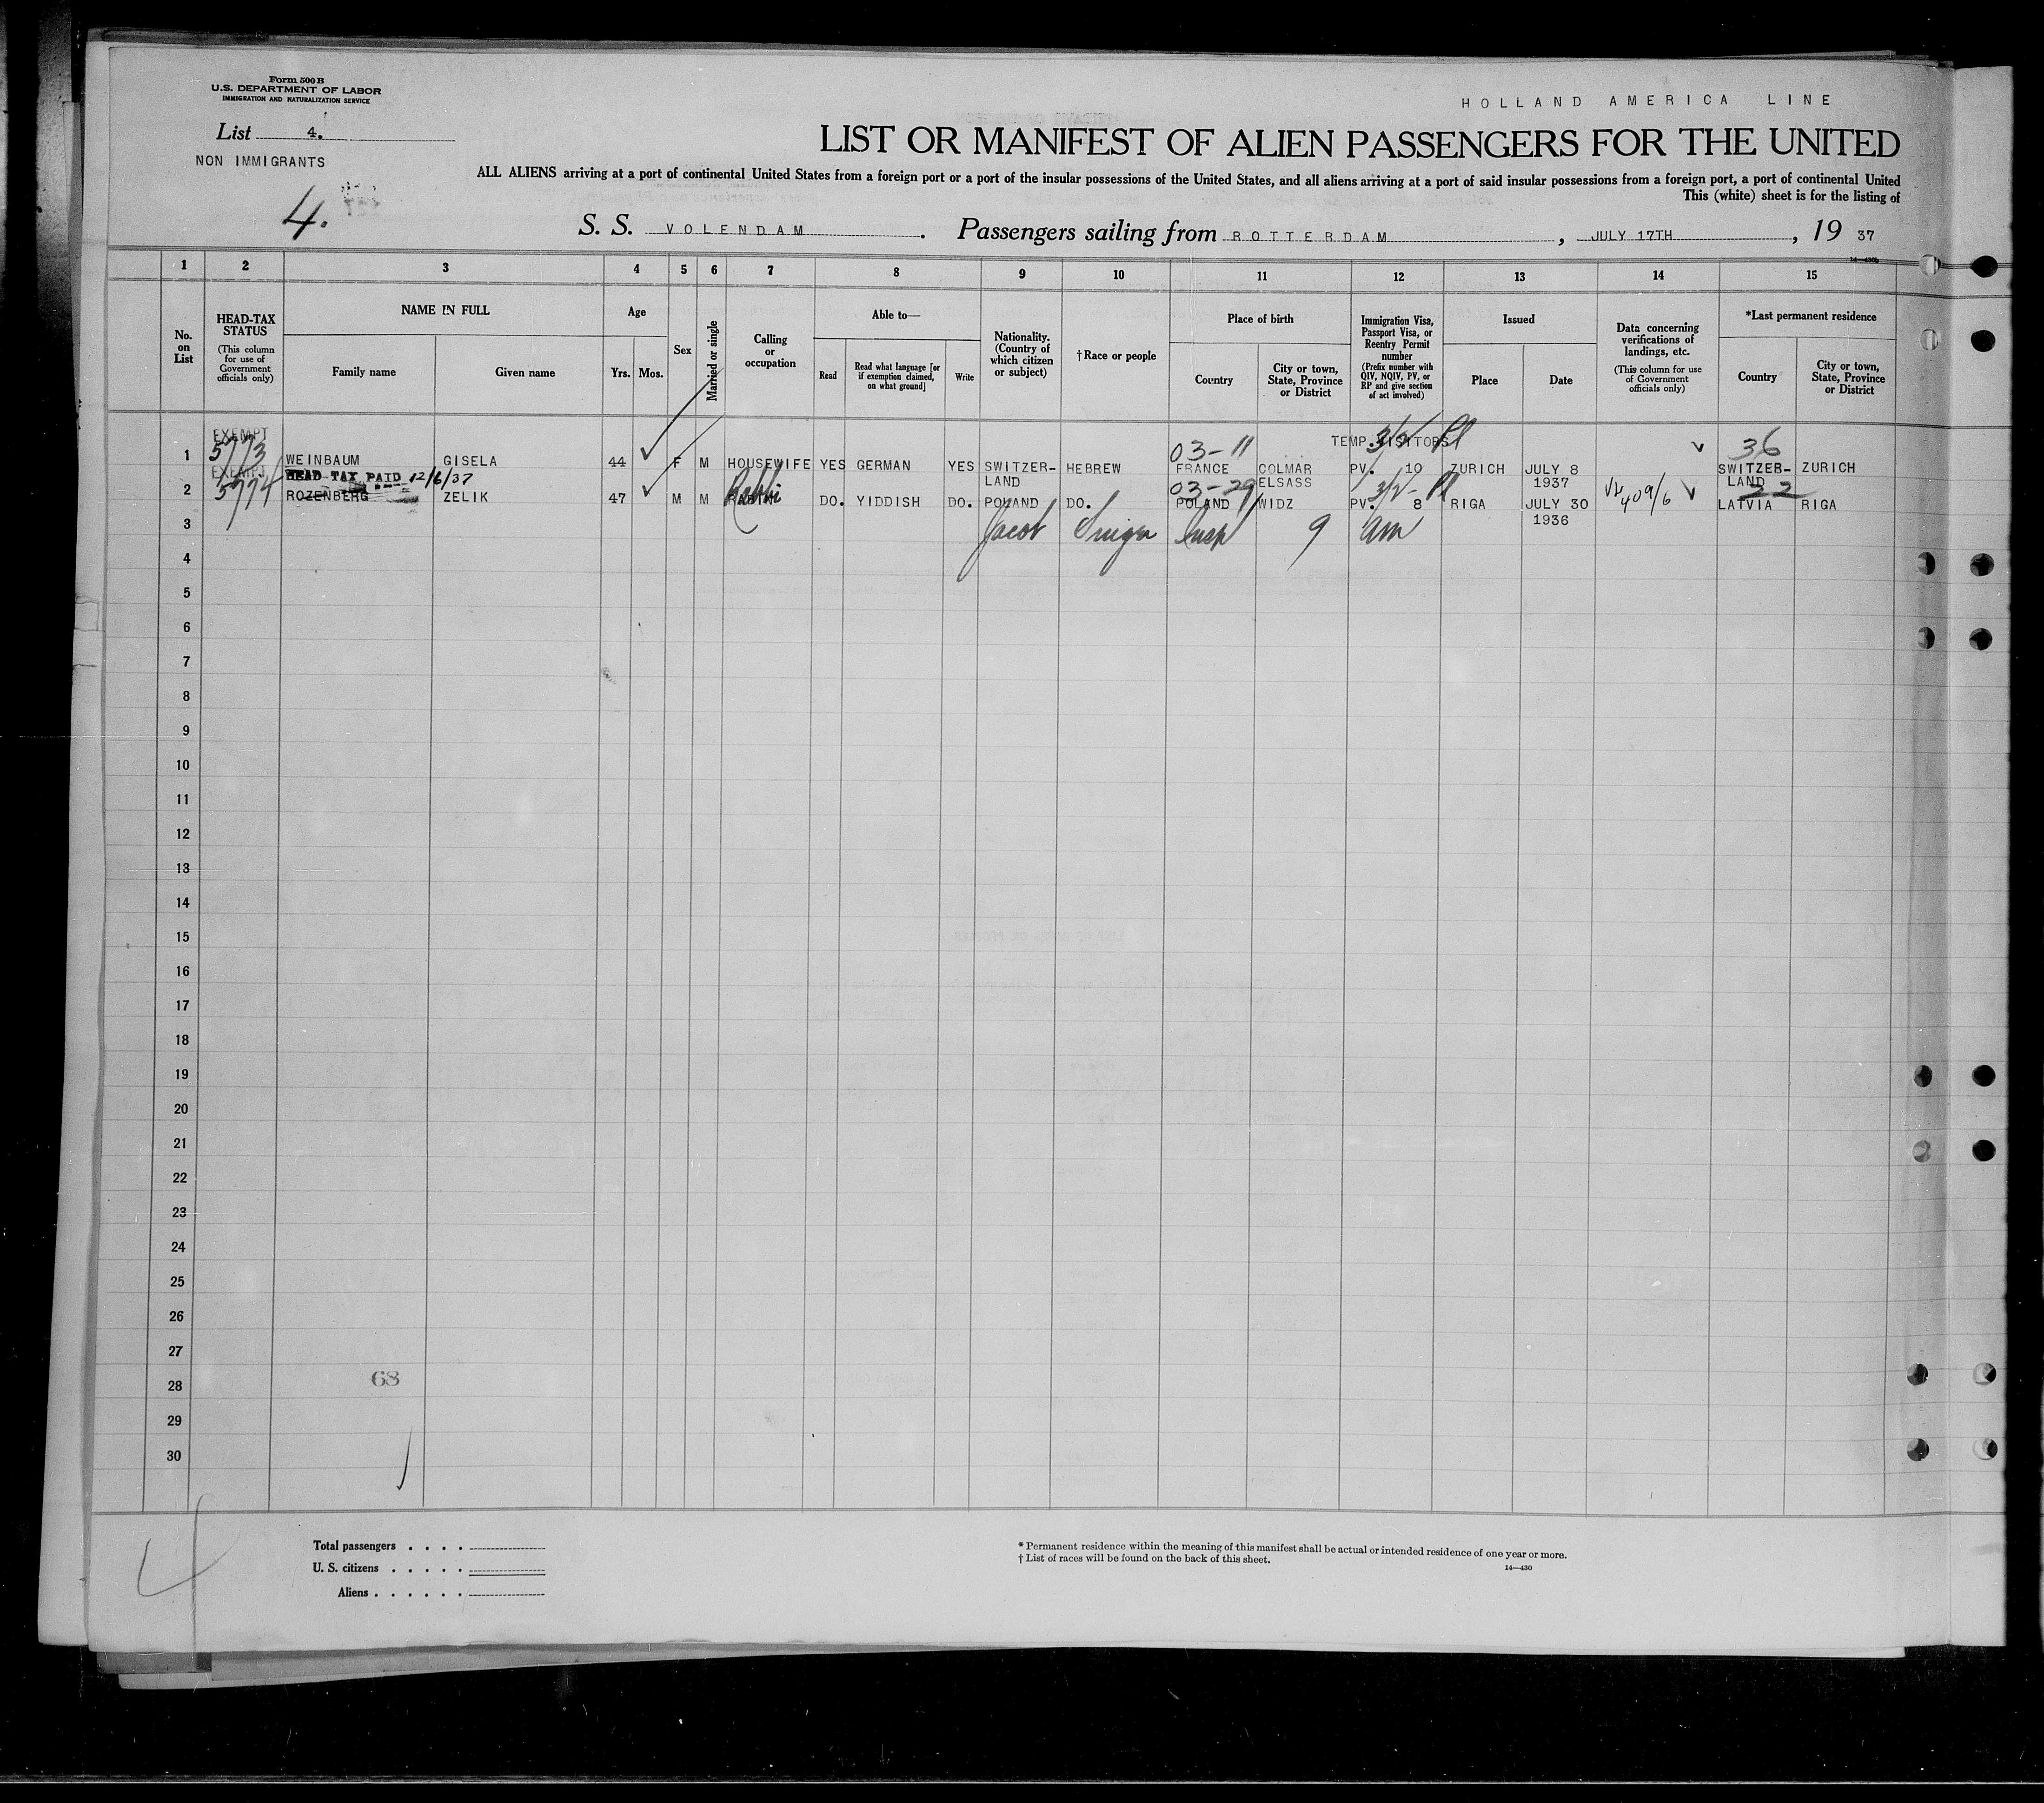 Form 500B
U.S. DEPARTMENT OF LABOR
IMMIGRATION AND NATURALIZATION SERVICE
HOLLAND AMERICA LINE
List 4.
NON IMMIGRANTS
4.
LIST OR MANIFEST OF ALIEN PASSENGERS FOR THE UNITED
ALL ALIENS arriving at a port of continental United States from a foreign port or a port of the insular possessions of the United States, and all aliens arriving at a port of said insular possessions from a foreign port, a port of continental United
This (white) sheet is for the listing of
S. S. VOLENDAM. Passengers sailing from ROTTERDAM, JULY 17TH, 19 37
14—430b
1 2 3 4 5 6 7 8 9 10 11 12 13 14 15
No. on List
HEAD-TAX STATUS
(This column for use of Government officials only)
NAME IN FULL
Family name
Given name
Age
Yrs. Mos.
Sex
Married or single
Calling or occupation
Able to—
Read
Read what language [or if exemption claimed, on what ground]
Write
Nationality. (Country of which citizen or subject)
†Race or people
Place of birth
Country
City or town, State, Province or District
Immigration Visa, Passport Visa, or Reentry Permit number
(Prefix number with QIV, NQIV, PV, or RP and give section of act involved)
Issued
Place
Date
Data concerning verifications of landings, etc.
(This column for use of Government officials only)
*Last permanent residence
Country
City or town, State, Province or District
EXEMPT 03-11 TEMP. VISITORS 3/2 Pl 36
1 5773 WEINBAUM GISELA 44 F M HOUSEWIFE YES GERMAN YES SWITZER- HEBREW FRANCE COLMAR PV. 10 ZURICH JULY 8 SWITZER- ZURICH
EXEMPT HEAD TAX PAID 12/6/37 LAND ELSASS 1937 LAND
03-29 3/2- Pl 22
2 5774 ROZENBERG ZELIK 47 M M Rabbi DO. YIDDISH DO. POLAND DO. POLAND WIDZ PV. 8 RIGA JULY 30 LATVIA RIGA
1936
3 Jacob Insp 9 am
4
5
6
7
8
9
10
11
12
13
14
15
16
17
18
19
20
21
22
23
24
25
26
27
28 68
29
30
4
Total passengers . . . .
U. S. citizens . . . . .
Aliens . . . . . .
* Permanent residence within the meaning of this manifest shall be actual or intended residence of one year or more.
† List of races will be found on the back of this sheet.
14—430